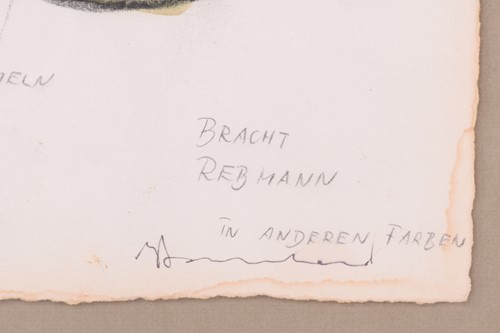 BRACHT
REBMANN
IN ANDEREN FARBEN